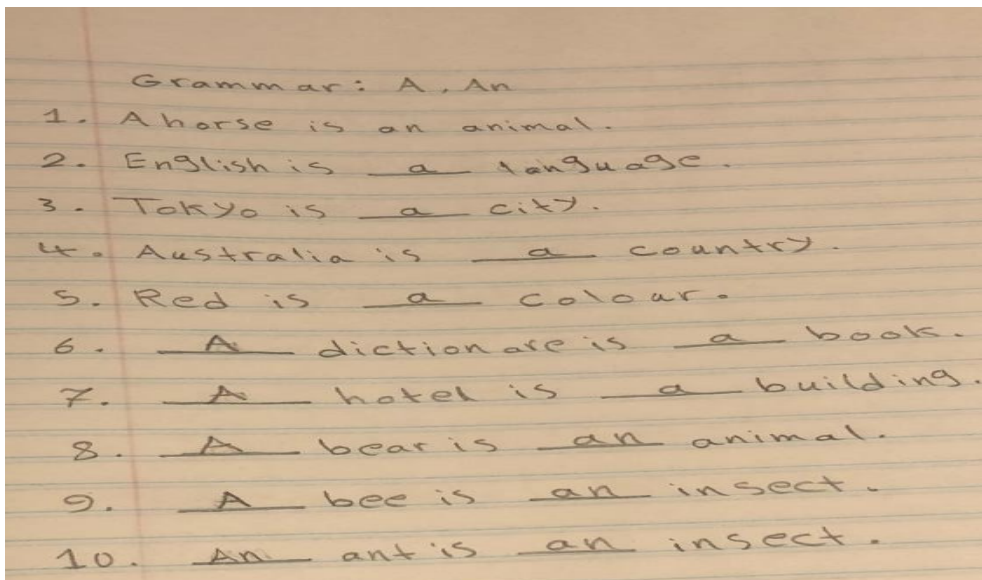 Grammar: A. An
1. A horse is an animal.
2. English is a language.
3. Tokyo is a city.
4. Australia is a country.
5. Red is a colour.
6. A dictionare is a book.
7. A hotel is a building.
8. A bear is an animal.
9. A bee is an insect.
10. An ant is an insect.